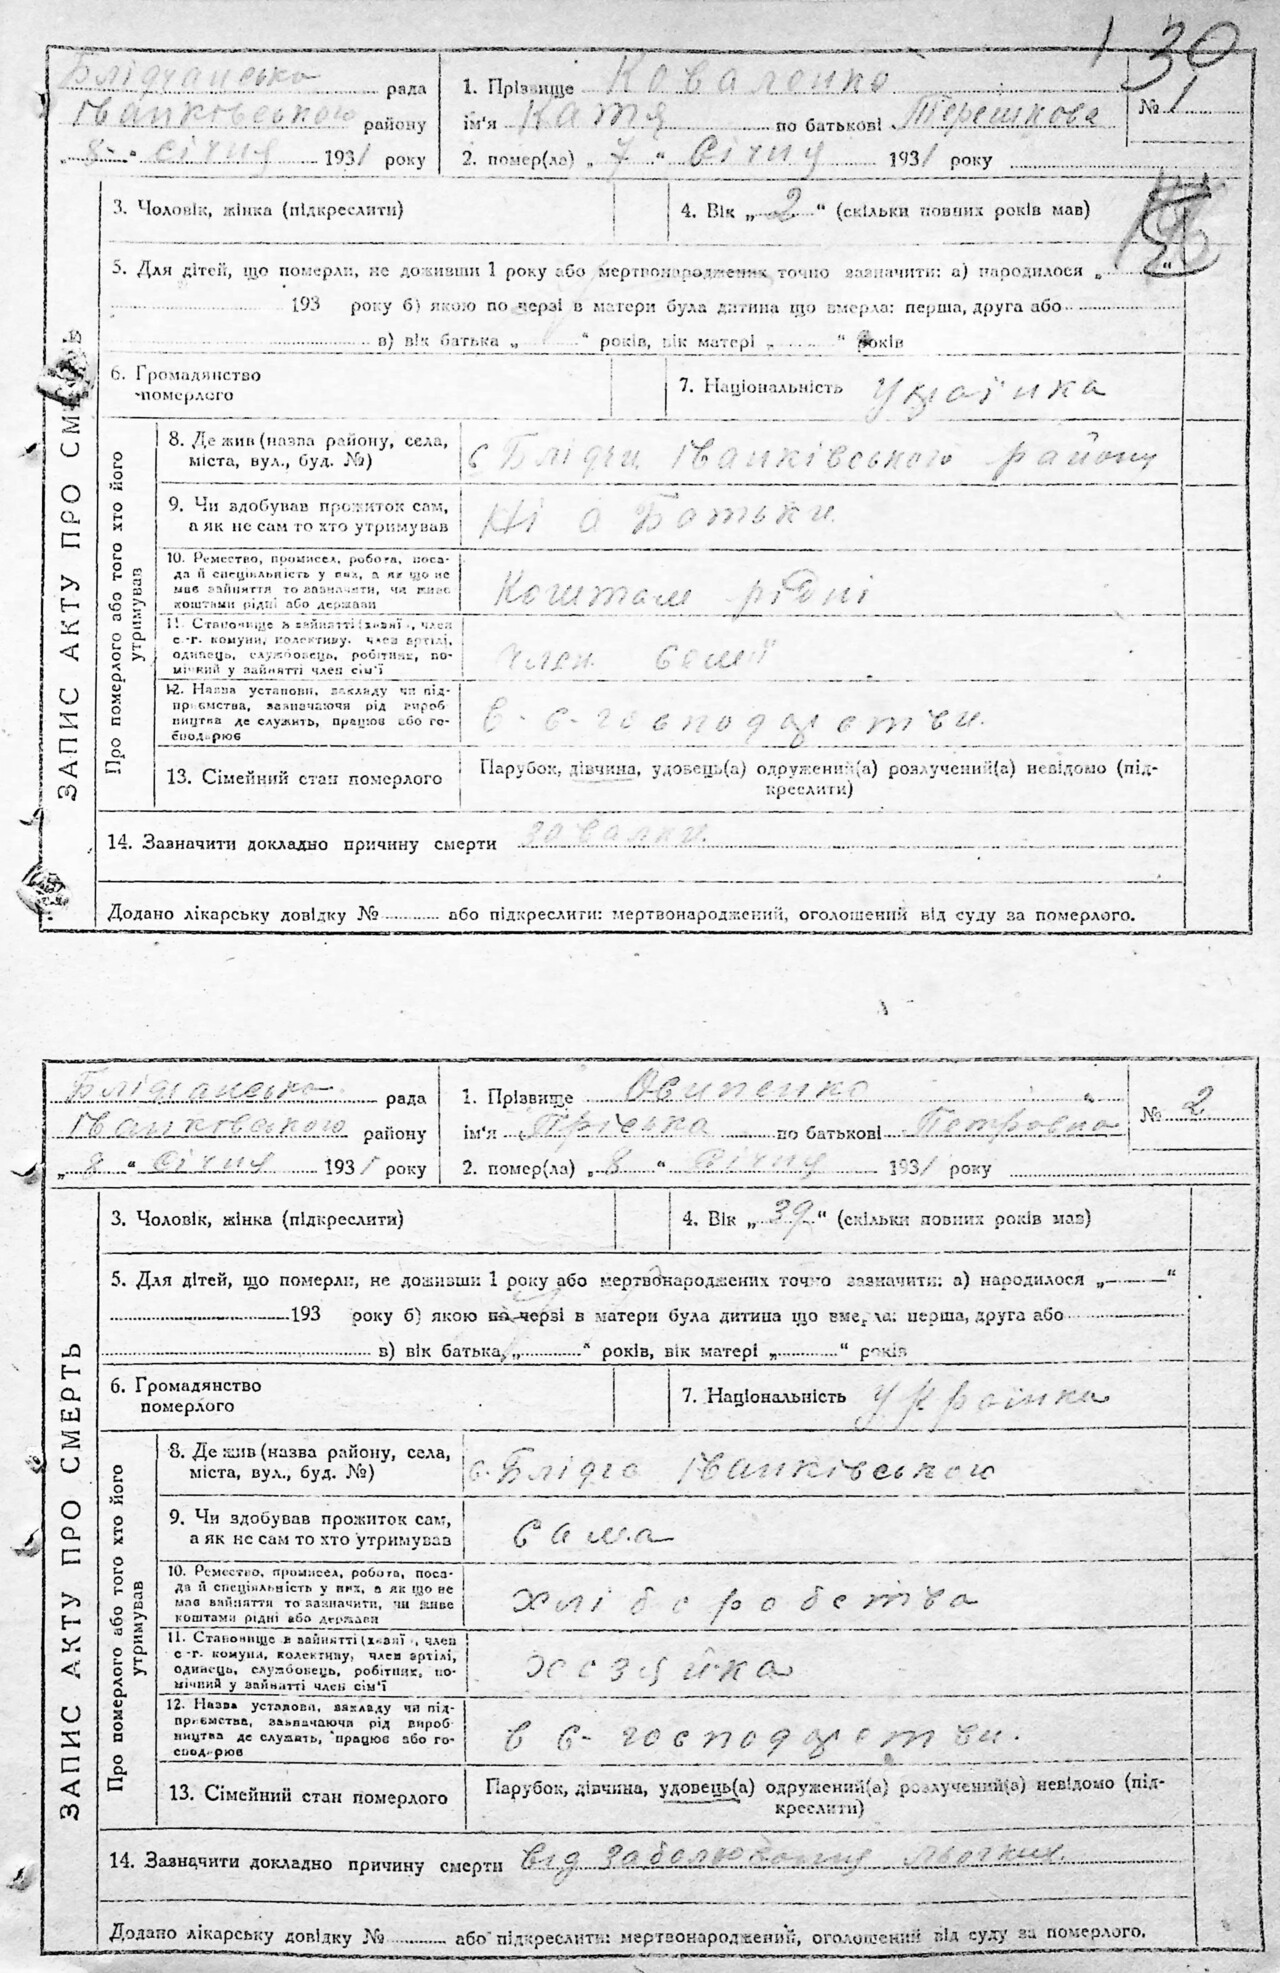 1 30
Блідчанська рада
Іванківського району
„ 8 “ січня 1931 року
1. Прізвище Коваленко
ім'я Катя по батькові Терешкова
2. помер(ла) „ 7 “ Січня 1931 року
№ 1
3. Чоловік, жінка (підкреслити)
4. Вік „ 2 “ (скільки повних років мав)
5. Для дітей, що померли, не доживши 1 року або мертвонароджених точно зазначити: а) народилося „ “
193 року б) якою по черзі в матери була дитина що вмерла: перша, друга або
в) вік батька „ “ років, вік матері „ “ років
6. Громадянство
померлого
7. Національність Украінка
ЗАПИС АКТУ ПРО
Про померлого або того хто його
утримував
8. Де жив (назва району, села,
міста, вул., буд. №)
с Блідчи Іванківського району
9. Чи здобував прожиток сам,
а як не сам то хто утримував
Ні а Батьки.
10. Ремество, промисел, робота, поса-
да й спеціяльність у них, а як що не
має зайняття то зазначити, чи живе
коштами рідні або держави
Коштам рідні
11. Становище в зайнятті (хазяї , член
с-г. комуни, колективу, член артілі,
одинець, службовець, робітник, по-
мічний у зайнятті член сім'ї
член семї
12. Назва установи, закладу чи під-
приємства, зазначаючи рід вироб-
ництва де служить, працює або го-
сподарює
в с-господарстви.
13. Сімейний стан померлого
Парубок, дівчина, удовець(а) одружений(а) розлучений(а) невідомо (під-
креслити)
14. Зазначити докладно причину смерти завалки.
Додано лікарську довідку № або підкреслити: мертвонароджений, оголошений від суду за померлого.
Блідчанська рада
Іванківського району
„ 8 “ Січня 1931 року
1. Прізвище Осипенко
ім'я Пріська по батькові Петровна
2. помер(ла) „ 8 “ Січня 1931 року
№ 2
3. Чоловік, жінка (підкреслити)
4. Вік „ 39 “ (скільки повних років мав)
5. Для дітей, що померли, не доживши 1 року або мертвонароджених точно зазначити: а) народилося „ “
193 року б) якою по черзі в матери була дитина що вмерла: перша, друга або
в) вік батька „ “ років, вік матері „ “ років
6. Громадянство
померлого
7. Національність Украінка
ЗАПИС АКТУ ПРО СМЕРТЬ
Про померлого або того хто його
утримував
8. Де жив (назва району, села,
міста, вул., буд. №)
с. Блідча Іванківського
9. Чи здобував прожиток сам,
а як не сам то хто утримував
сама
10. Ремество, промисел, робота, поса-
да й спеціяльність у них, а як що не
має зайняття то зазначити, чи живе
коштами рідні або держави
хліборобства
11. Становище в зайнятті (хазяї , член
с-г. комуни, колективу, член артілі,
одинець, службовець, робітник, по-
мічний у зайнятті член сім'ї
хозяйка
12. Назва установи, закладу чи під-
приємства, зазначаючи рід вироб-
ництва де служить, працює або го-
сподарює
в с-господарстви.
13. Сімейний стан померлого
Парубок, дівчина, удовець(а) одружений(а) розлучений(а) невідомо (під-
креслити)
14. Зазначити докладно причину смерти від заболювання льогких.
Додано лікарську довідку № або підкреслити: мертвонароджений, оголошений від суду за померлого.